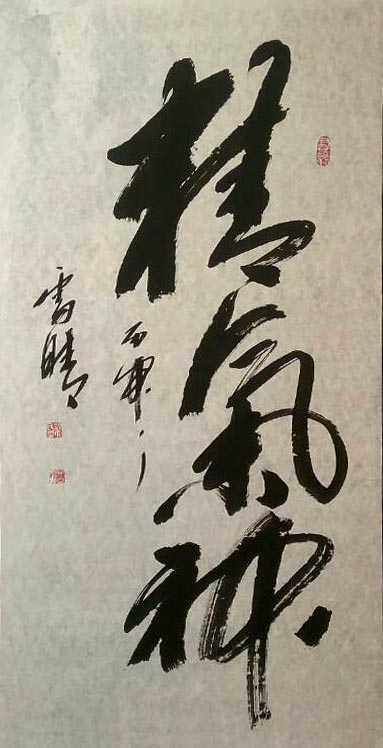 精氣神
丙申
雪晴